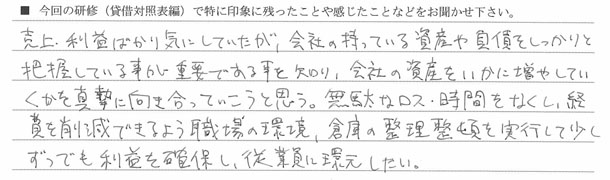 ■ 今回の研修（貸借対照表編）で特に印象に残ったことや感じたことなどをお聞かせ下さい。
売上・利益ばかり気にしていたが、会社の持っている資産や負債をしっかりと
把握している事が重要である事を知り、会社の資産をいかに増やしてい
くかを真摯に向き合っていこうと思う。無駄なロス・時間をなくし、経
費を削減できるよう職場の環境、倉庫の整理整頓を実行して少し
ずつでも利益を確保し、従業員に還元したい。